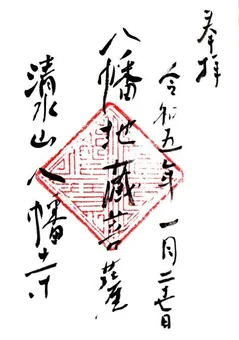 奉拝
令和五年一月二十七日
八幡地蔵菩薩
清水山 八幡寺